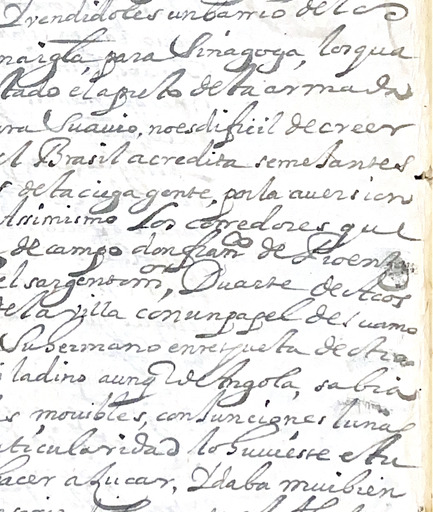 Y vendidoles un barrio de la
naigla, para Sinagoga, los qua
tado el apreto de la armada
ara Suauio, no es dificil de creer
el Brasil acredita semejantes
s de la ciega gente, por la auersion
Assimismo los corredores que
de campo don fran^co de
el sargento m^or, Duarte de
de la villa con un papel de su amo
Su hermano en respuesta de
i ladino aunq̃ de Angola, sabia
s mouibles, conjunciones luna
aticularidad lo huuieste
hacer a zucar, Y daba mui bien